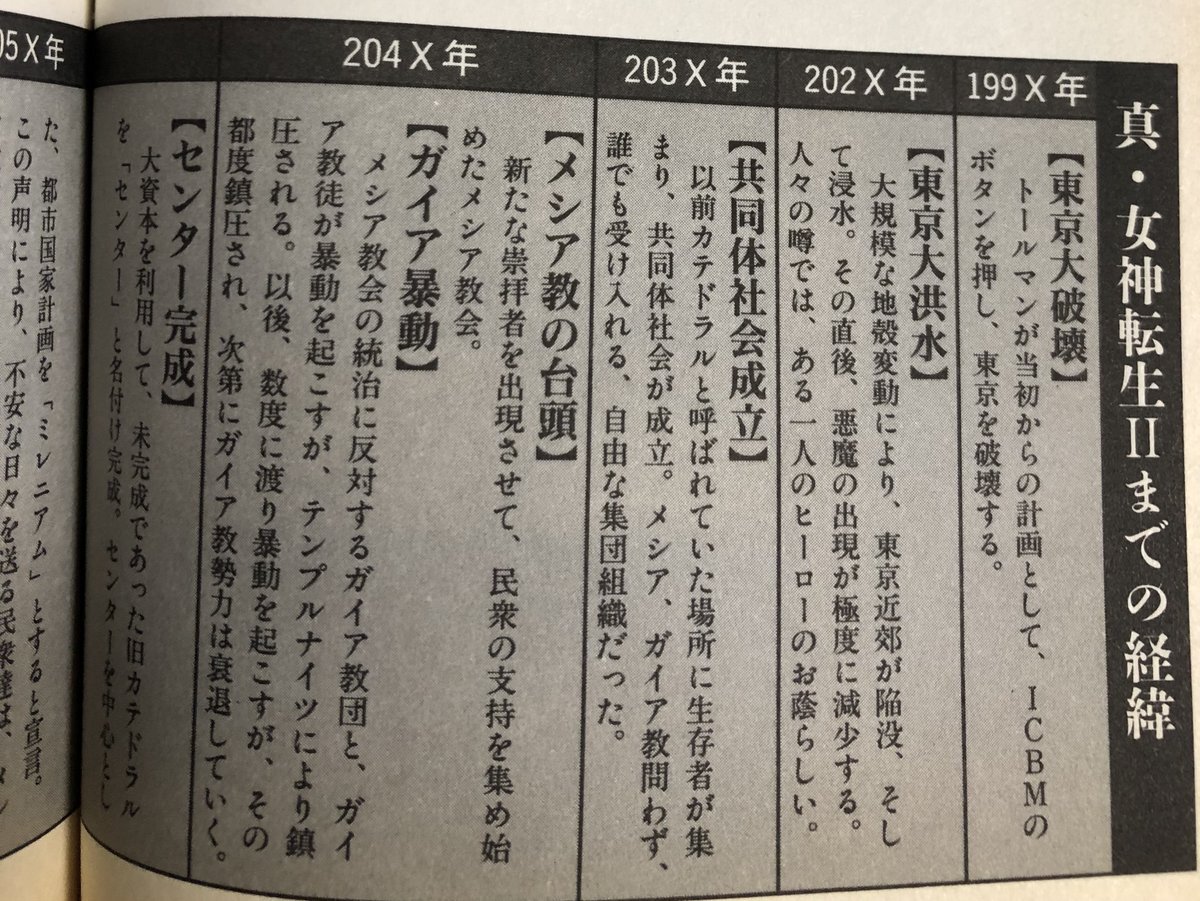 真・女神転生IIまでの経緯
199X年
【東京大破壊】
トールマンが当初からの計画として、ICBMの
ボタンを押し、東京を破壊する。
202X年
【東京大洪水】
大規模な地殻変動により、東京近郊が陥没、そし
て浸水。その直後、悪魔の出現が極度に減少する。
人々の噂では、ある一人のヒーローのお蔭らしい。
203X年
【共同体社会成立】
以前カテドラルと呼ばれていた場所に生存者が集
まり、共同体社会が成立。メシア、ガイア教問わず、
誰でも受け入れる、自由な集団組織だった。
204X年
【メシア教の台頭】
新たな崇拝者を出現させて、民衆の支持を集め始
めたメシア教会。
【ガイア暴動】
メシア教会の統治に反対するガイア教団と、ガイ
ア教徒が暴動を起こすが、テンプルナイツにより鎮
圧される。以後、数度に渡り暴動を起こすが、その
都度鎮圧され、次第にガイア教勢力は衰退していく。
【センター完成】
大資本を利用して、未完成であった旧カテドラル
を「センター」と名付け完成。センターを中心とし
05X年
た、都市国家計画を「ミレニアム」とすると宣言。
この声明により、不安な日々を送る民衆達は、